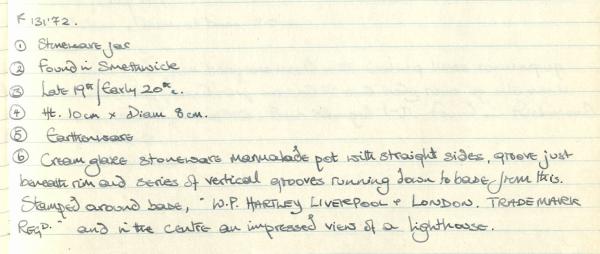 K 131'72.
① Stoneware jar
② Found in Smethwick
③ Late 19th/Early 20th c.
④ Ht. 10cm x Diam 8cm.
⑤ Earthenware
⑥ Cream glaze stoneware marmalade pot with straight sides, groove just
beneath rim and series of vertical grooves running down to base from this.
Stamped around base, "W.P. HARTLEY LIVERPOOL & LONDON. TRADE MARK
REGD." and in the centre an impressed view of a lighthouse.